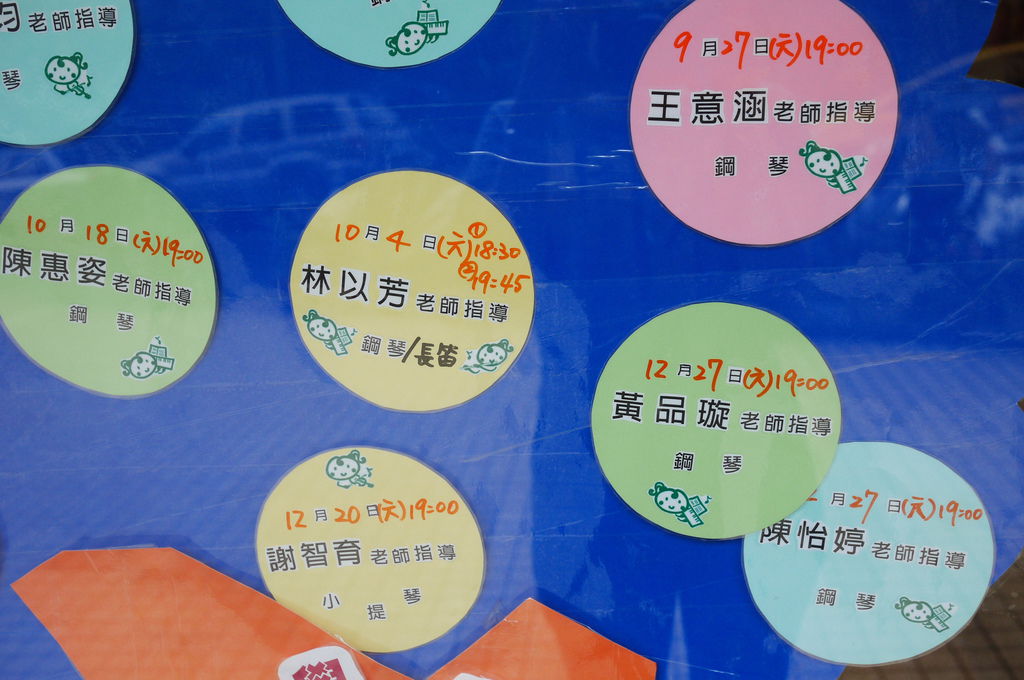 老師指導
琴
鋼
9月27日(六)19:00
王意涵老師指導
鋼琴
10月18日(六)19:00
陳惠姿老師指導
鋼琴
10月4日(六)①18:30
②19:45
林以芳老師指導
鋼琴/長笛
12月27日(六)19:00
黃品璇老師指導
鋼琴
12月20日(六)19:00
謝智育老師指導
小提琴
月27日(六)19:00
陳怡婷老師指導
鋼琴